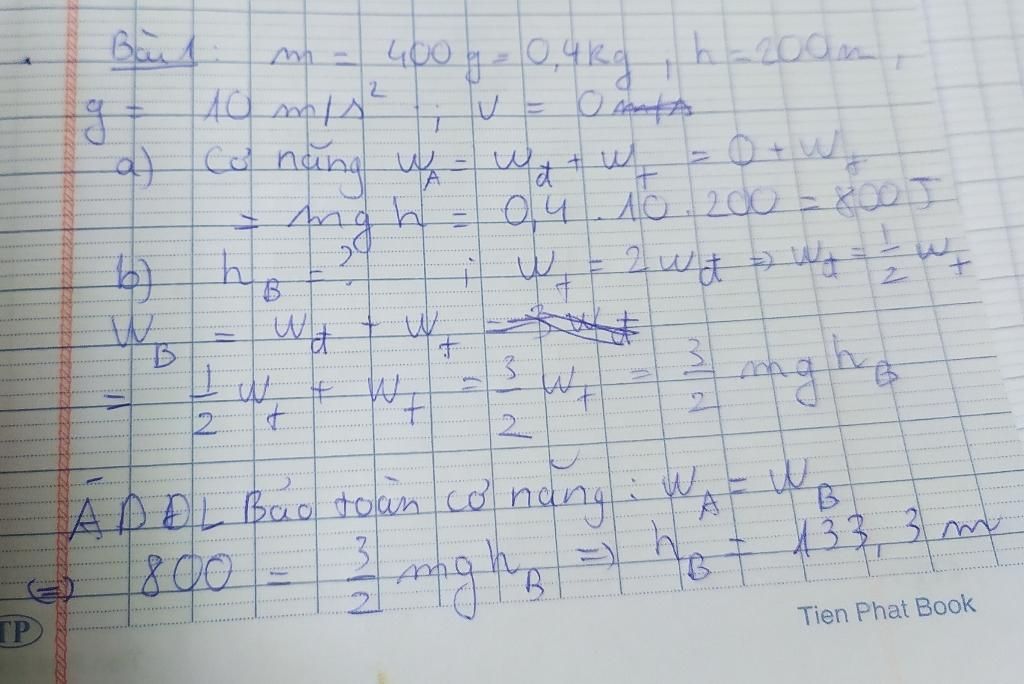 Bài 1: m = 400g = 0,4kg, h = 200m,
g = 10 m/s² ; v = 0 m/s
a) Cơ năng W_A = W_đ + W_t = 0 + W_t
= mgh = 0,4 . 10 . 200 = 800J
b) h_B = ? ; W_t = 2W_đ => W_đ = 1/2 W_t
W_B = W_đ + W_t = 3W_đ
= 1/2 W_t + W_t = 3/2 W_t = 3/2 mgh_B
ÁDĐL Bảo toàn cơ năng : W_A = W_B
<=> 800 = 3/2 mgh_B => h_B = 133,3 m
Tien Phat Book
TP